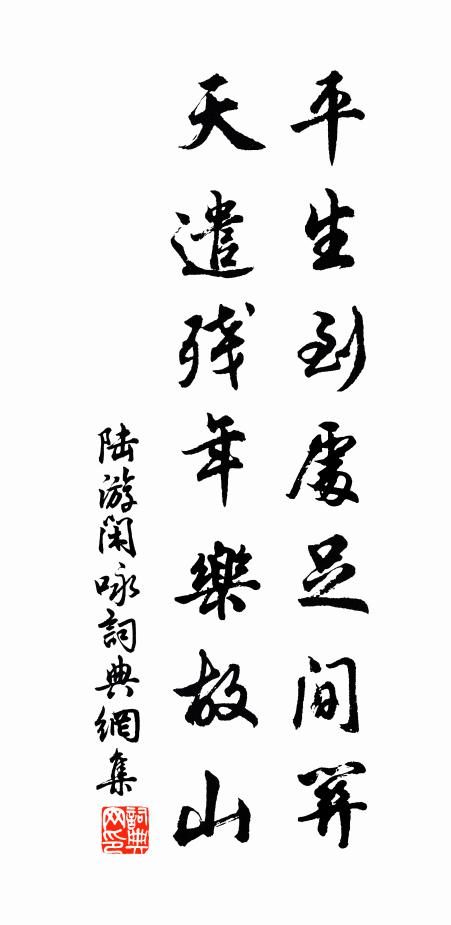 平生到處足間關
天遣殘年樂故山
陸游閑咏詞典網集
詞典
网印